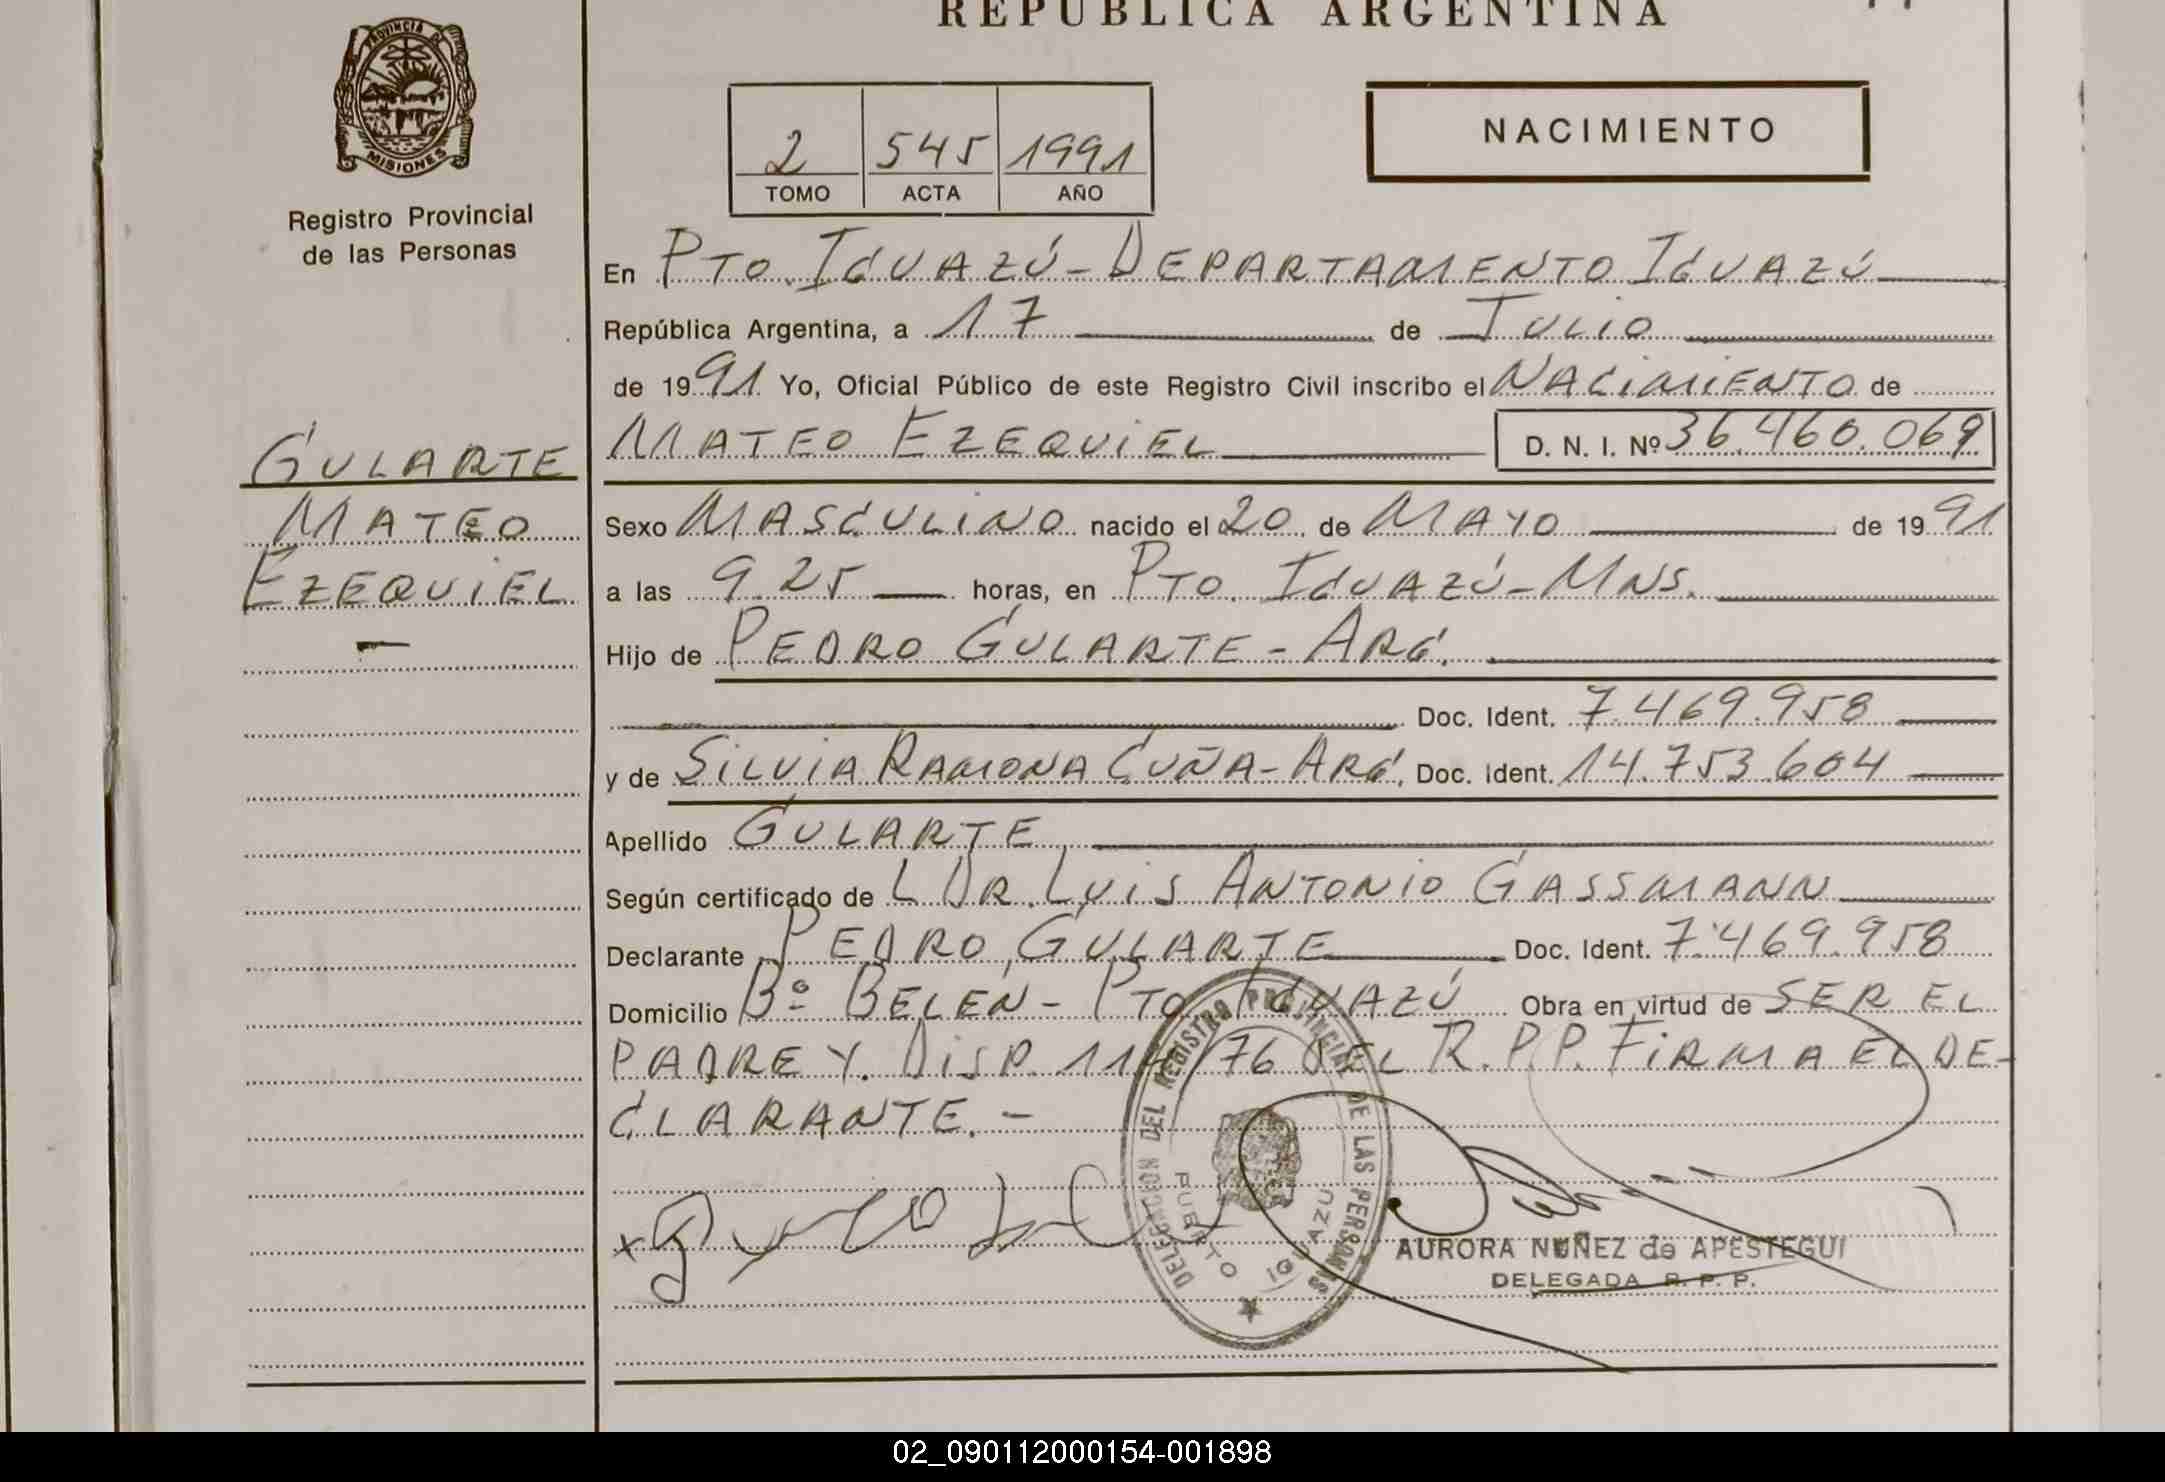 REPUBLICA ARGENTINA
PROVINCIA DE
MISIONES
Registro Provincial
de las Personas
2 545 1991
TOMO ACTA AÑO
NACIMIENTO
En PTO. IGUAZÚ - DEPARTAMENTO IGUAZÚ
República Argentina, a 17 de JULIO
de 1991 Yo, Oficial Público de este Registro Civil inscribo el NACIMIENTO de
MATEO EZEQUIEL D. N. I. Nº 36.460.069
GULARTE
MATEO
EZEQUIEL
Sexo MASCULINO nacido el 20 de MAYO de 1991
a las 9.25 horas, en PTO. IGUAZÚ - MNS.
Hijo de PEDRO GULARTE - ARG.
Doc. Ident. 7.469.958
y de SILVIA RAMONA CUÑA - ARG. Doc. Ident. 14.753.604
Apellido GULARTE
Según certificado de L DR. LUIS ANTONIO GASSMANN
Declarante PEDRO GULARTE Doc. Ident. 7.469.958
Domicilio Bº BELÉN - PTO IGUAZÚ Obra en virtud de SER EL
PADRE Y. DISP. 114/76 DEL R.P.P. FIRMA EL DE-
CLARANTE. -
DELEGACION DEL REGISTRO PROVINCIAL DE LAS PERSONAS
PUERTO IGUAZU
AURORA NUÑEZ de APESTEGUI
DELEGADA R. P. P.
02_090112000154-001898